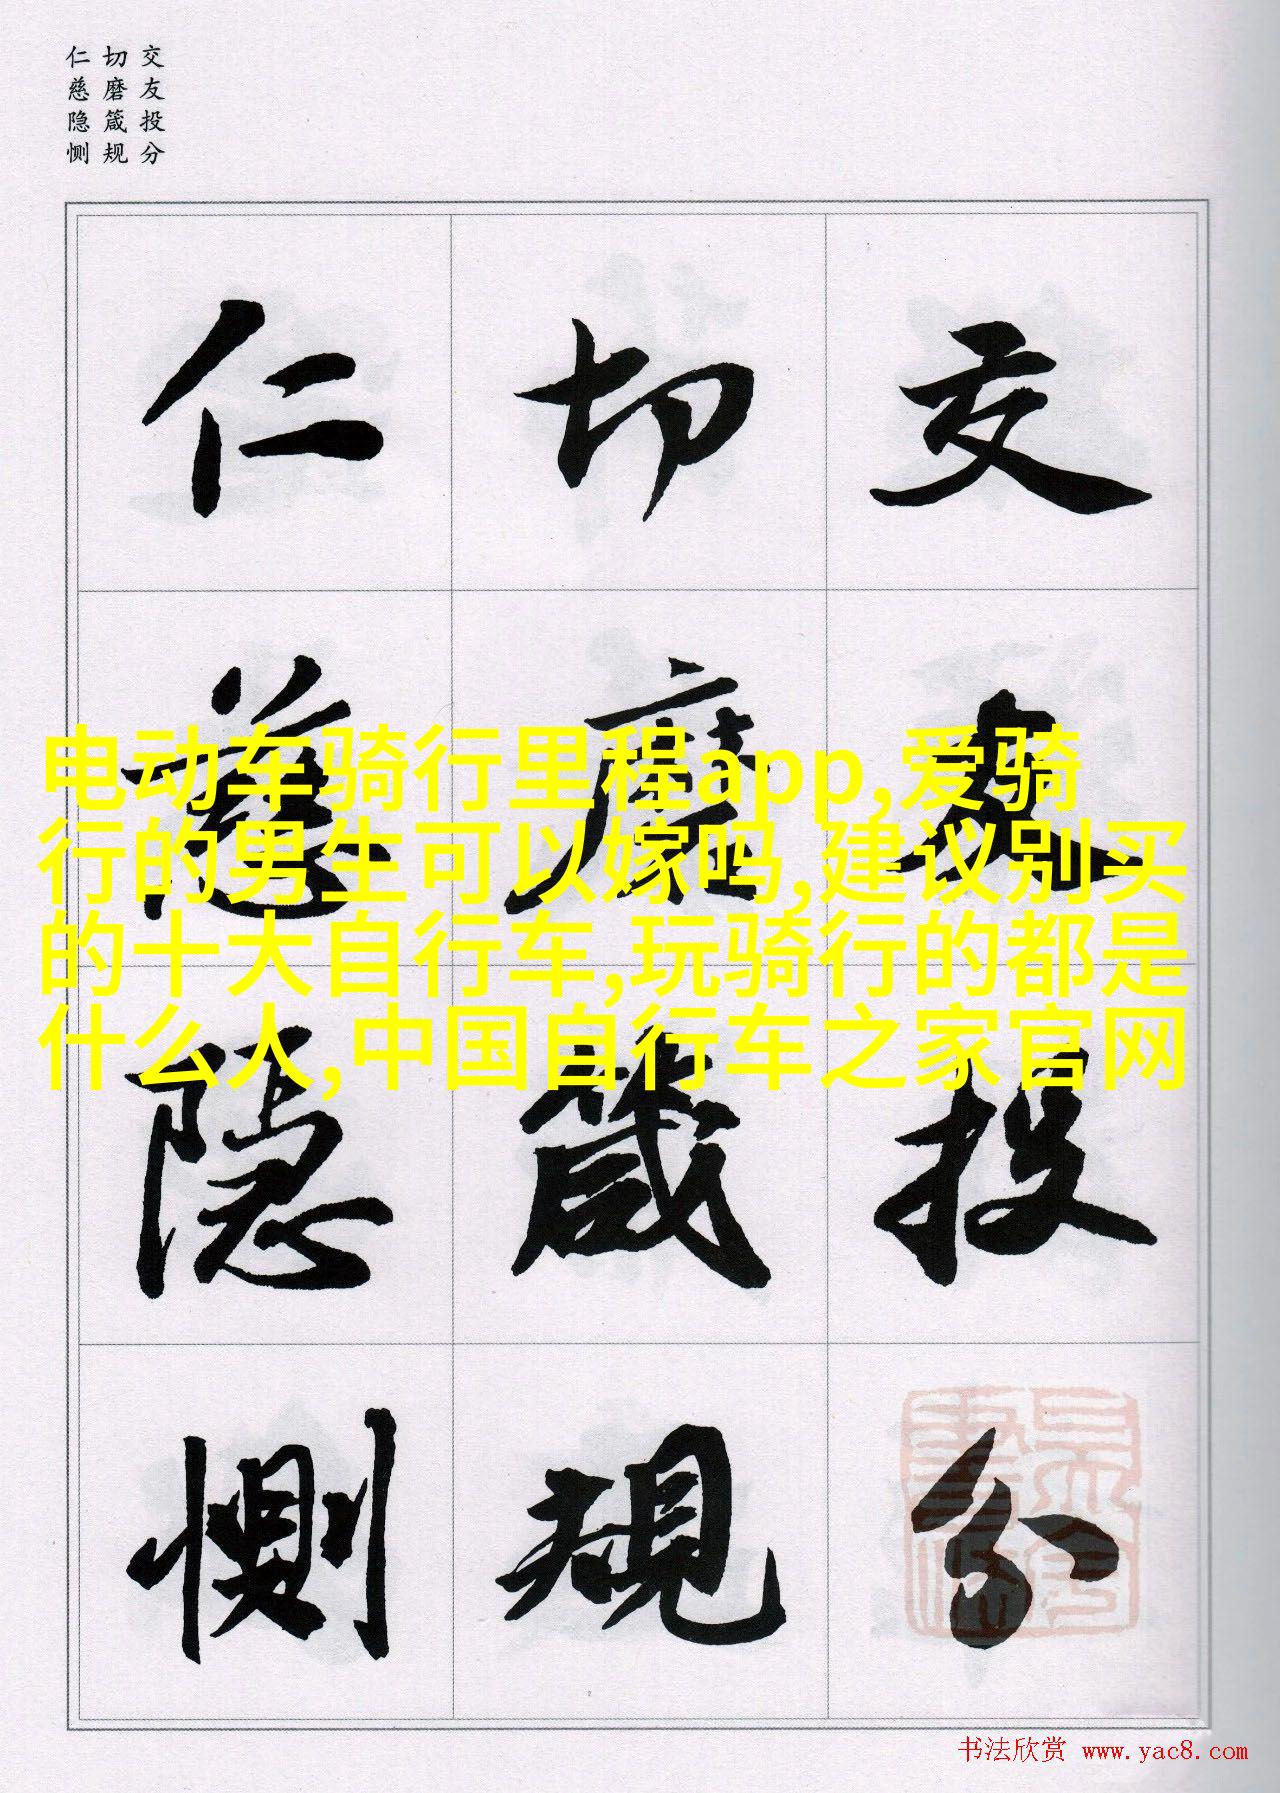 交友投分
切磨箴规
仁慈隐恻
交友投分
切磨箴規
仁慈隐恻
电动车骑行里程app,爱骑
行的男生可以嫁吗,建议别买
的十大自行车,玩骑行的都是
什么人,中国自行车之家官网
书法欣赏 www.yac8.com